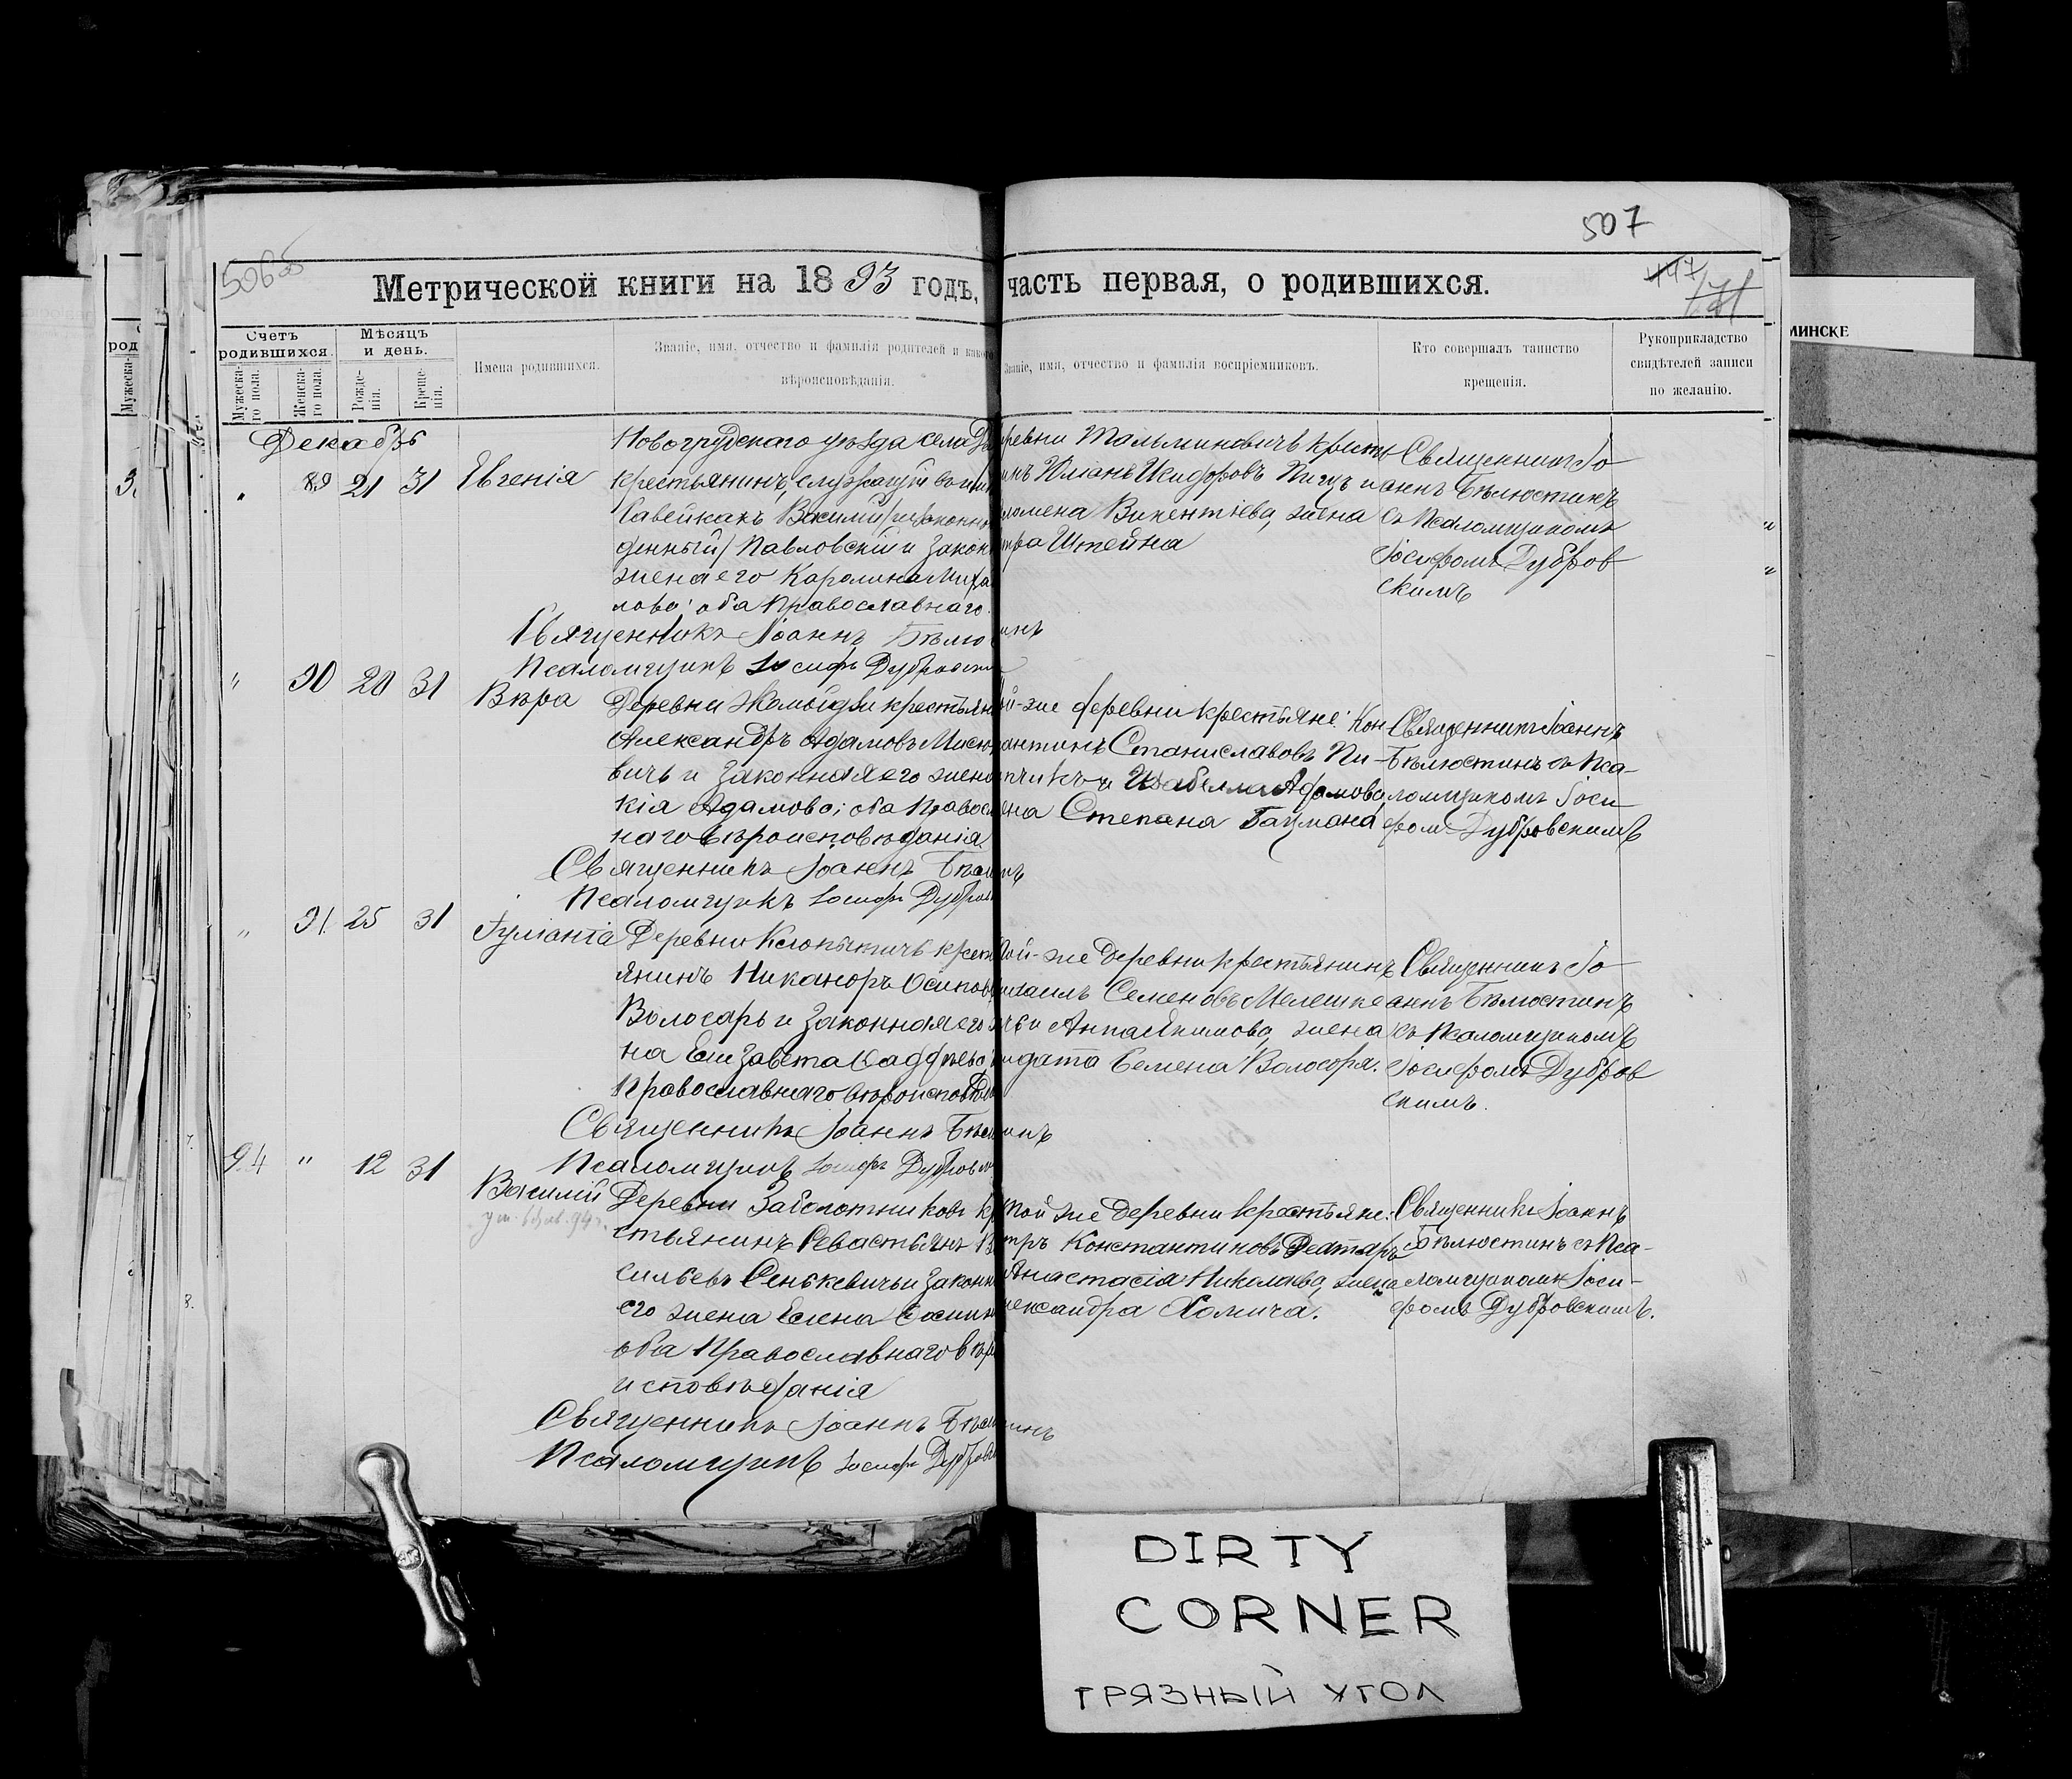 507
506об
Метрической книги на 1893 годъ, часть первая, о родившихся.
447
МИНСКЕ
род
Мужеска-
Счетъ родившихся.
Мужеска-го пола.
Женска-го пола.
Мѣсяцъ и день.
Рожде-нія.
Креще-нія.
Имена родившихся.
Званіе, имя, отчество и фамилія родителей и какого
вѣроисповѣданія.
Званіе, имя, отчество и фамилія воспріемниковъ.
Кто совершалъ таинство
крещенія.
Рукоприкладство
свидѣтелей записи
по желанію.
Декабрь
89 21 31 Евгенія
Новогрудскаго уѣзда села
крестьянинъ, служащій
Савейкахъ Василій
денный) Павловскій и закон
жена его Каролина Миха
лова; оба православнаго
Священникъ Іоаннъ Бѣлю инъ
Псаломщикъ Іосифъ Дубровски
ревни Тальминовичъ крест
инъ Иліанъ Исидоровъ и
ломена Викентіева, жена
тра Штейна
Священникъ Іо
аннъ Бѣлюстинъ
съ псаломщикомъ
Іосифомъ Дубров
скимъ
" 90 20 31 Вѣра
Деревни Жомойдзи крестьян
Александръ Адамовъ Мисю
вичъ и законная его жена
кія Адамова; оба правосл
наго вѣроисповѣданія.
Священникъ Іоаннъ Бѣлю нъ
Псаломщикъ Іосифъ Дубров
ой-же деревни крестьяне: Кон
антинъ Станиславовъ Пи-
чикъ и Изабелла Адамова
ена Степана Баумана
Священникъ Іоаннъ
Бѣлюстинъ съ пса-
ломщикомъ Іоси
фомъ Дубровскимъ
" 91 25 31 Іуліанія
Деревни Клопытичъ крест
янинъ Никаноръ Осиповъ
Волосарь и законная его
на Елизавета Фаддѣева
православнаго вѣроисповѣдан
Священникъ Іоаннъ Бѣлю инъ
Псаломщикъ Іосифъ Дубровск
той-же деревни крестьянинъ
ихаилъ Семеновъ Мелешке
и Анна Якимова, жена
лдата Семена Волосаря.
Священникъ Іо
аннъ Бѣлюстинъ
съ псаломщикомъ
Іосифомъ Дубров
скимъ.
94 " 12 31 Василій
Деревни Заболотниковъ кр
стьянинъ Севастьянъ В
сильевъ Сенькевичъ и законн
его жена Елена Осипов
оба православнаго вѣр
исповѣданія
Священникъ Іоаннъ Бѣлю инъ
Псаломщикъ Іосифъ Дубров
той же деревни крестьяне:
тръ Константиновъ
Анастасія Николаева, жена
лександра Хомича.
Священникъ Іоаннъ
Бѣлюстинъ съ пса-
ломщикомъ Іоси-
фомъ Дубровскимъ.
DIRTY
CORNER
ГРЯЗНЫЙ УГОЛ